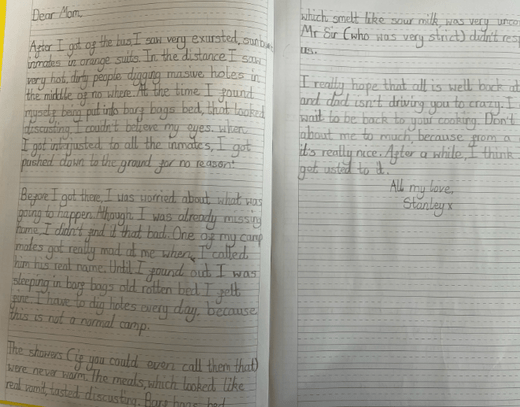 Dear Mom,
After I got of the bus I saw very exursted, sunburnt
inmates in orange suits. In the distance I saw
very hot, dirty people digging massive holes in
the middle of no where. At the time I found
myself being put into barf bags bed, that looked
discusting. I couldn't believe my eyes. When
I got intorjusted to all the inmates, I got
pushed down to the ground for no reason!
Before I got there, I was worried about what was
going to happen. Although, I was already missing
home, I didn't find it that bad. One of my camp
mates got really mad at me when I called
him his real name. Until I found out I was
sleeping in barf bags old rotten bed I felt
fine. I have to dig holes every day, because
this is not a normal camp.
The showers (if you could even call them that)
were never warm. The meals, which looked like
real vomit, tasted discusting. Barf bags bed
which smelt like sour milk, was very unco
Mr Sir (who was very strict) didn't resp
us.
I really hope that all is well back at
and dad isn't driving you to crazy. I
wait to be back to your cooking. Don't
about me to much, because from a
it's really nice. After a while, I think
get usted to it.
All my love,
Stanley x